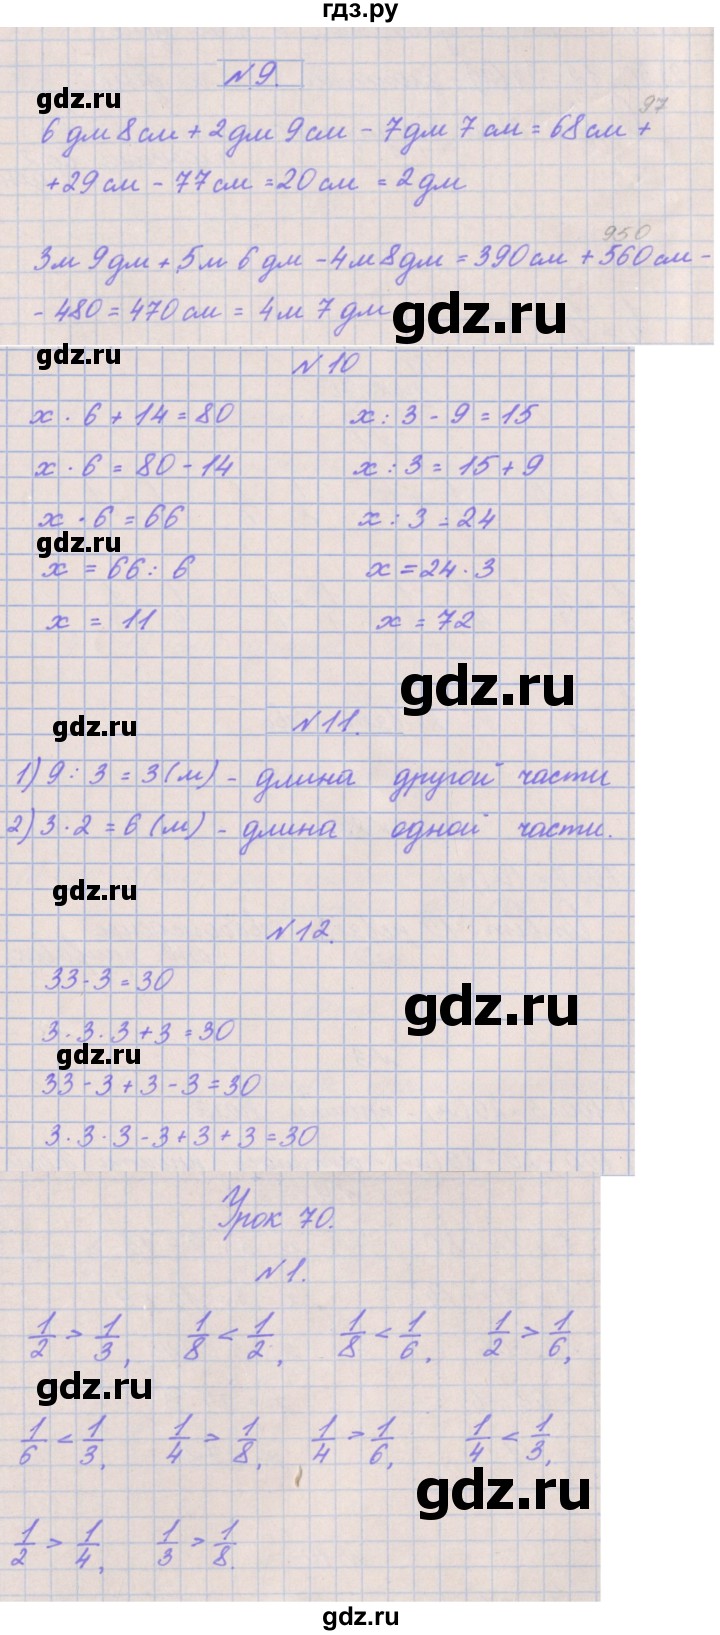 гдз.ру
№9.
gdz.ru
97
6 дм 8 см + 2 дм 9 см - 7 дм 7 см = 68 см +
+ 29 см - 77 см = 20 см = 2 дм
950
3 м 9 дм + 5 м 6 дм - 4 м 8 дм = 390 см + 560 см -
- 480 = 470 см = 4 м 7 дм
gdz.ru
gdz.ru
№10
x · 6 + 14 = 80 x : 3 - 9 = 15
x · 6 = 80 - 14 x : 3 = 15 + 9
x · 6 = 66 x : 3 = 24
gdz.ru
x = 66 : 6 x = 24 · 3
x = 11 x = 72
gdz.ru
gdz.ru
№11.
1) 9 : 3 = 3 (м) - длина другой части
2) 3 · 2 = 6 (м) - длина одной части.
gdz.ru
№12.
33 - 3 = 30
gdz.ru
3 · 3 · 3 + 3 = 30
gdz.ru
33 - 3 + 3 - 3 = 30
3 · 3 · 3 - 3 + 3 + 3 = 30
Урок 70.
№1.
1/2 > 1/3, 1/8 < 1/2, 1/8 < 1/6, 1/2 > 1/6,
gdz.ru
1/6 < 1/3, 1/4 > 1/8, 1/4 > 1/6, 1/4 < 1/3,
gdz.ru
1/2 > 1/4, 1/3 > 1/8.
gdz.ru